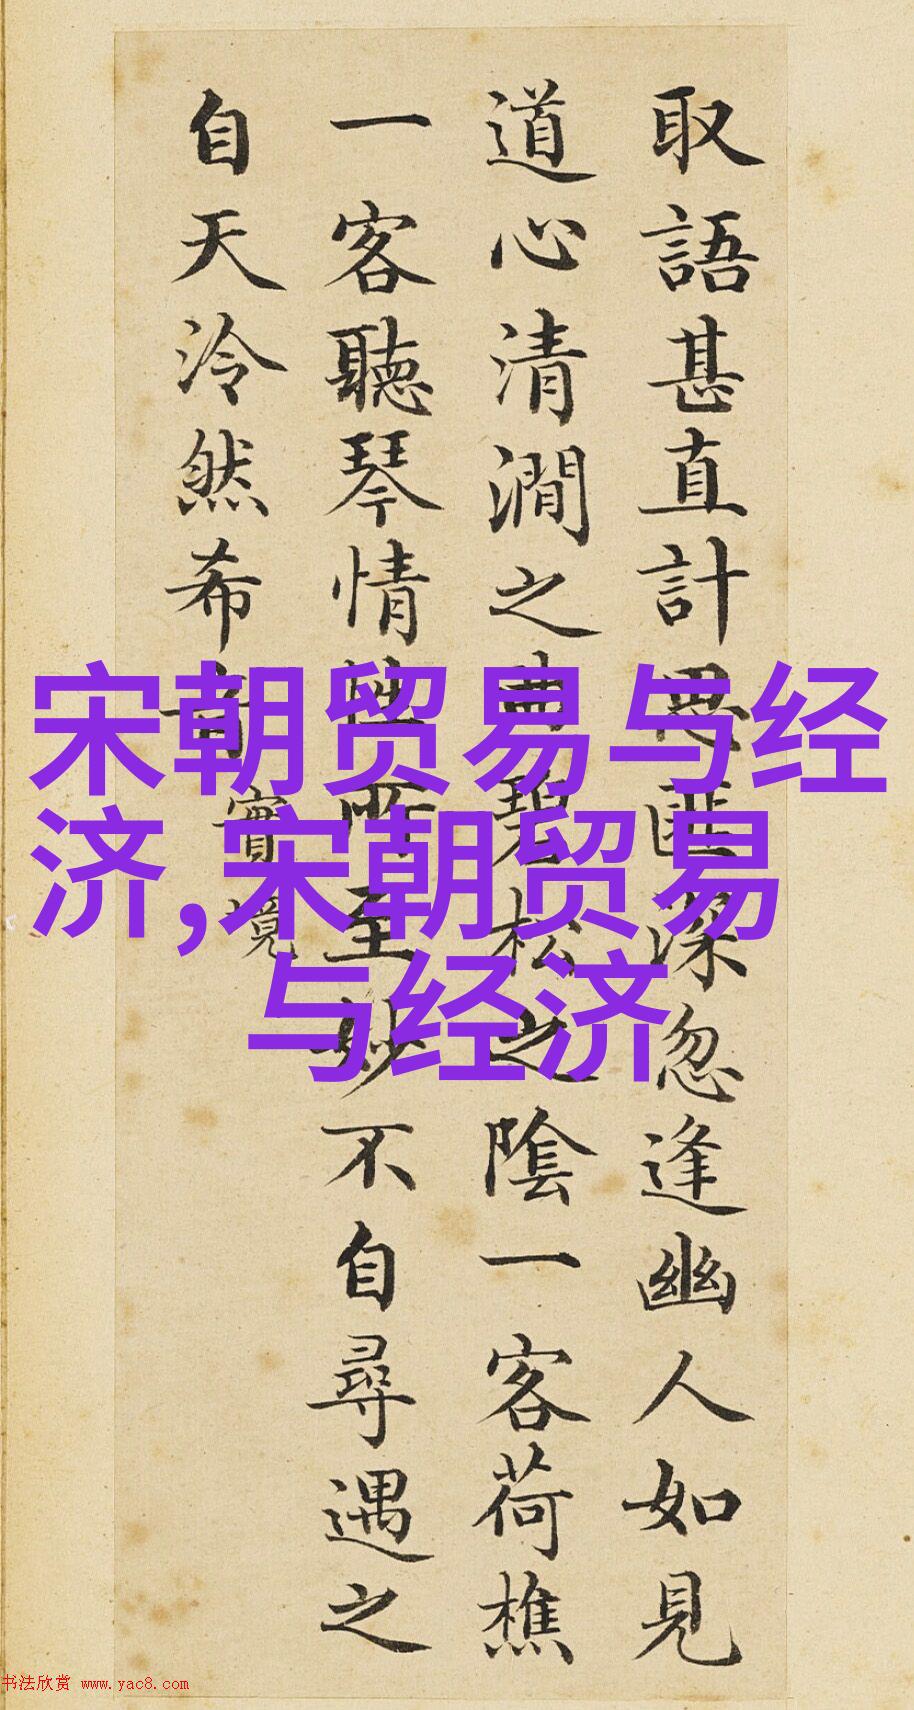 取語甚直計思匪深忽逢幽人如見
道心清澗之曲碧松之陰一客荷樵
一客聽琴情性所至妙不自尋遇之
自天泠然希音
實境
宋朝贸易与经
济,宋朝贸易
与经济
书法欣赏 www.yac8.com